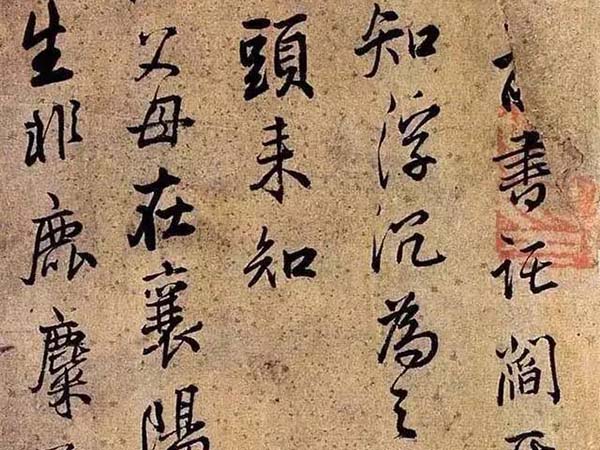 書託閻
知浮沉為之
頭未知
父母在襄陽
生非鹿麋